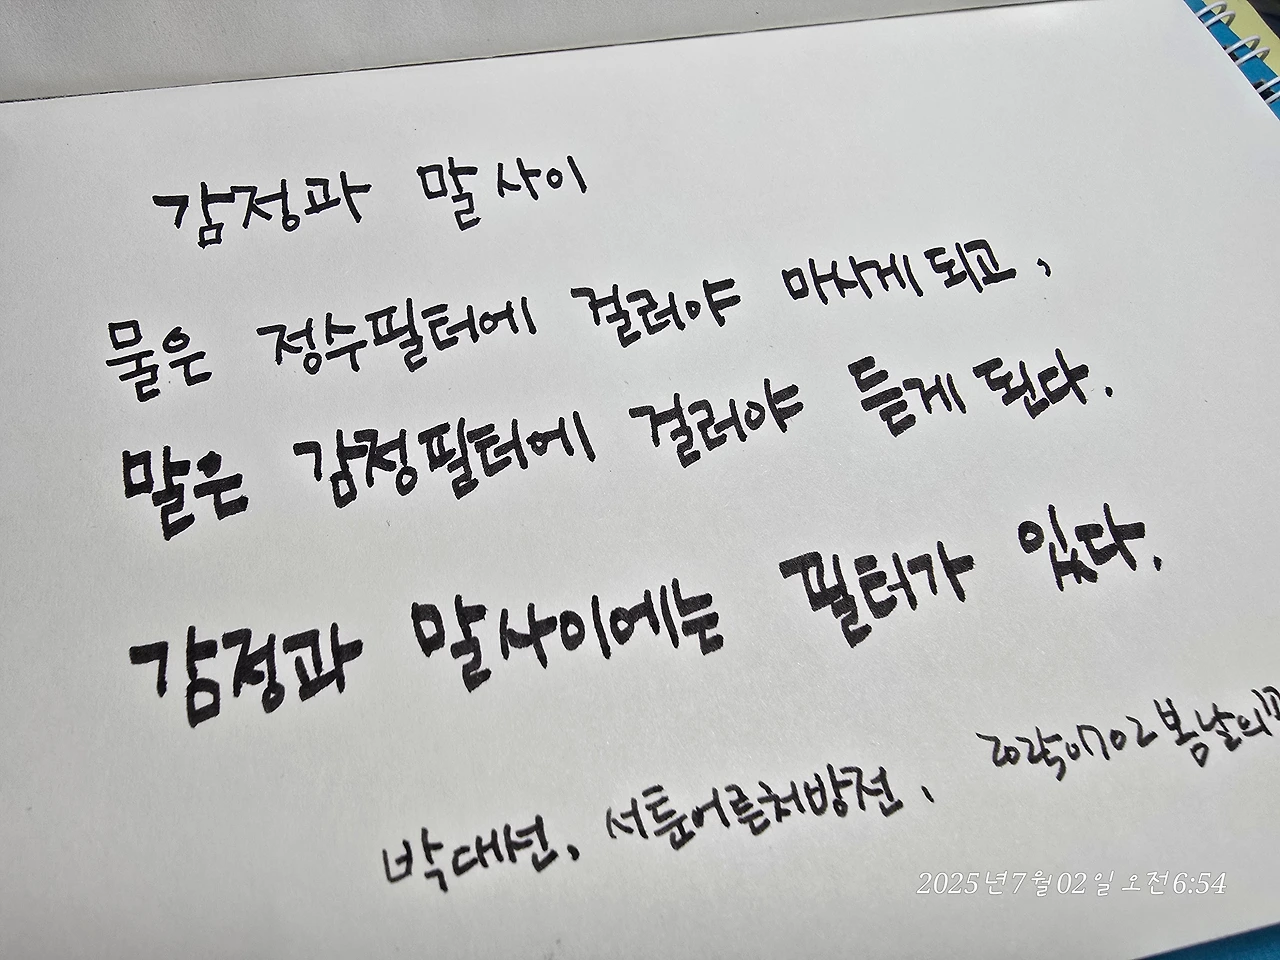 감정과 말 사이
물은 정수필터에 걸러야 마시게 되고,
말은 감정필터에 걸러야 듣게 된다.
감정과 말사이에는 필터가 있다.
20250702 봄날의
박대선, 서툰어른처방전.
2025년 7월 02일 오전 6:54